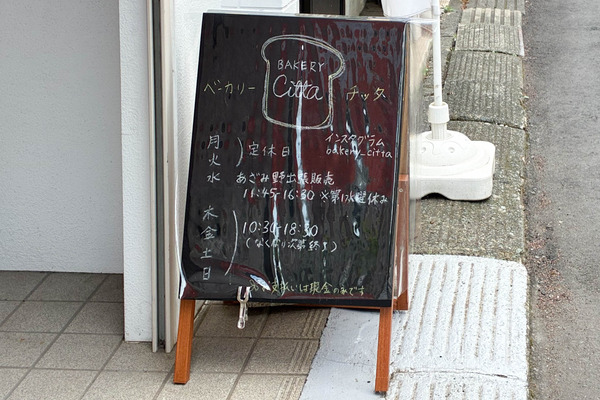 BAKERY
Citta
ベーカリー チッタ
月
火 定休日
インスタグラム
bakery_citta
水 あざみ野出張販売
11:45-16:30 ※第1水曜休み
木
金 10:30-18:30
土 (なくなり次第終了)
日
お支払いは現金のみです